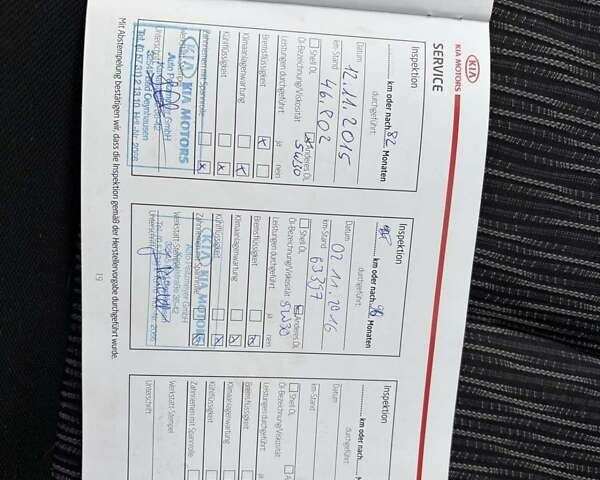 KIA MOTORS
KIA
SERVICE
Inspektion
km oder nach 82 Monaten
durchgeführt:
Datum 12.11.2015
km-Stand 46.802
Shell ÖL Anderes ÖL
Öl-Bezeichnung/Viskosität 5W30
Leistungen durchgeführt: ja nein
Bremsflüssigkeit X
Klimaanlagenwartung X
Kühlflüssigkeit X
Zahnriemen mit Spannrolle X
KIA MOTORS
Unterschrift
Inspektion
km oder nach 96 Monaten
durchgeführt:
Datum 02.11.2016
km-Stand 63397
Shell ÖL Anderes ÖL
Öl-Bezeichnung/Viskosität 5W30
Leistungen durchgeführt: ja nein
Bremsflüssigkeit X
Klimaanlagenwartung X
Kühlflüssigkeit X
Zahnriemen mit Spannrolle X
KIA MOTORS
Werkstatt-Stempel
Unterschrift
Inspektion
km oder nach Monaten
durchgeführt:
Datum
km-Stand
Shell ÖL
Öl-Bezeichnung/Viskosität
Leistungen durchgeführt:
Bremsflüssigkeit
Klimaanlagenwartung
Kühlflüssigkeit
Zahnriemen mit Spannrolle
Werkstatt-Stempel
Unterschrift
Mit Abstempelung bestätigen wir, dass die Inspektion gemäß der Herstellervorgabe durchgeführt wurde.
19